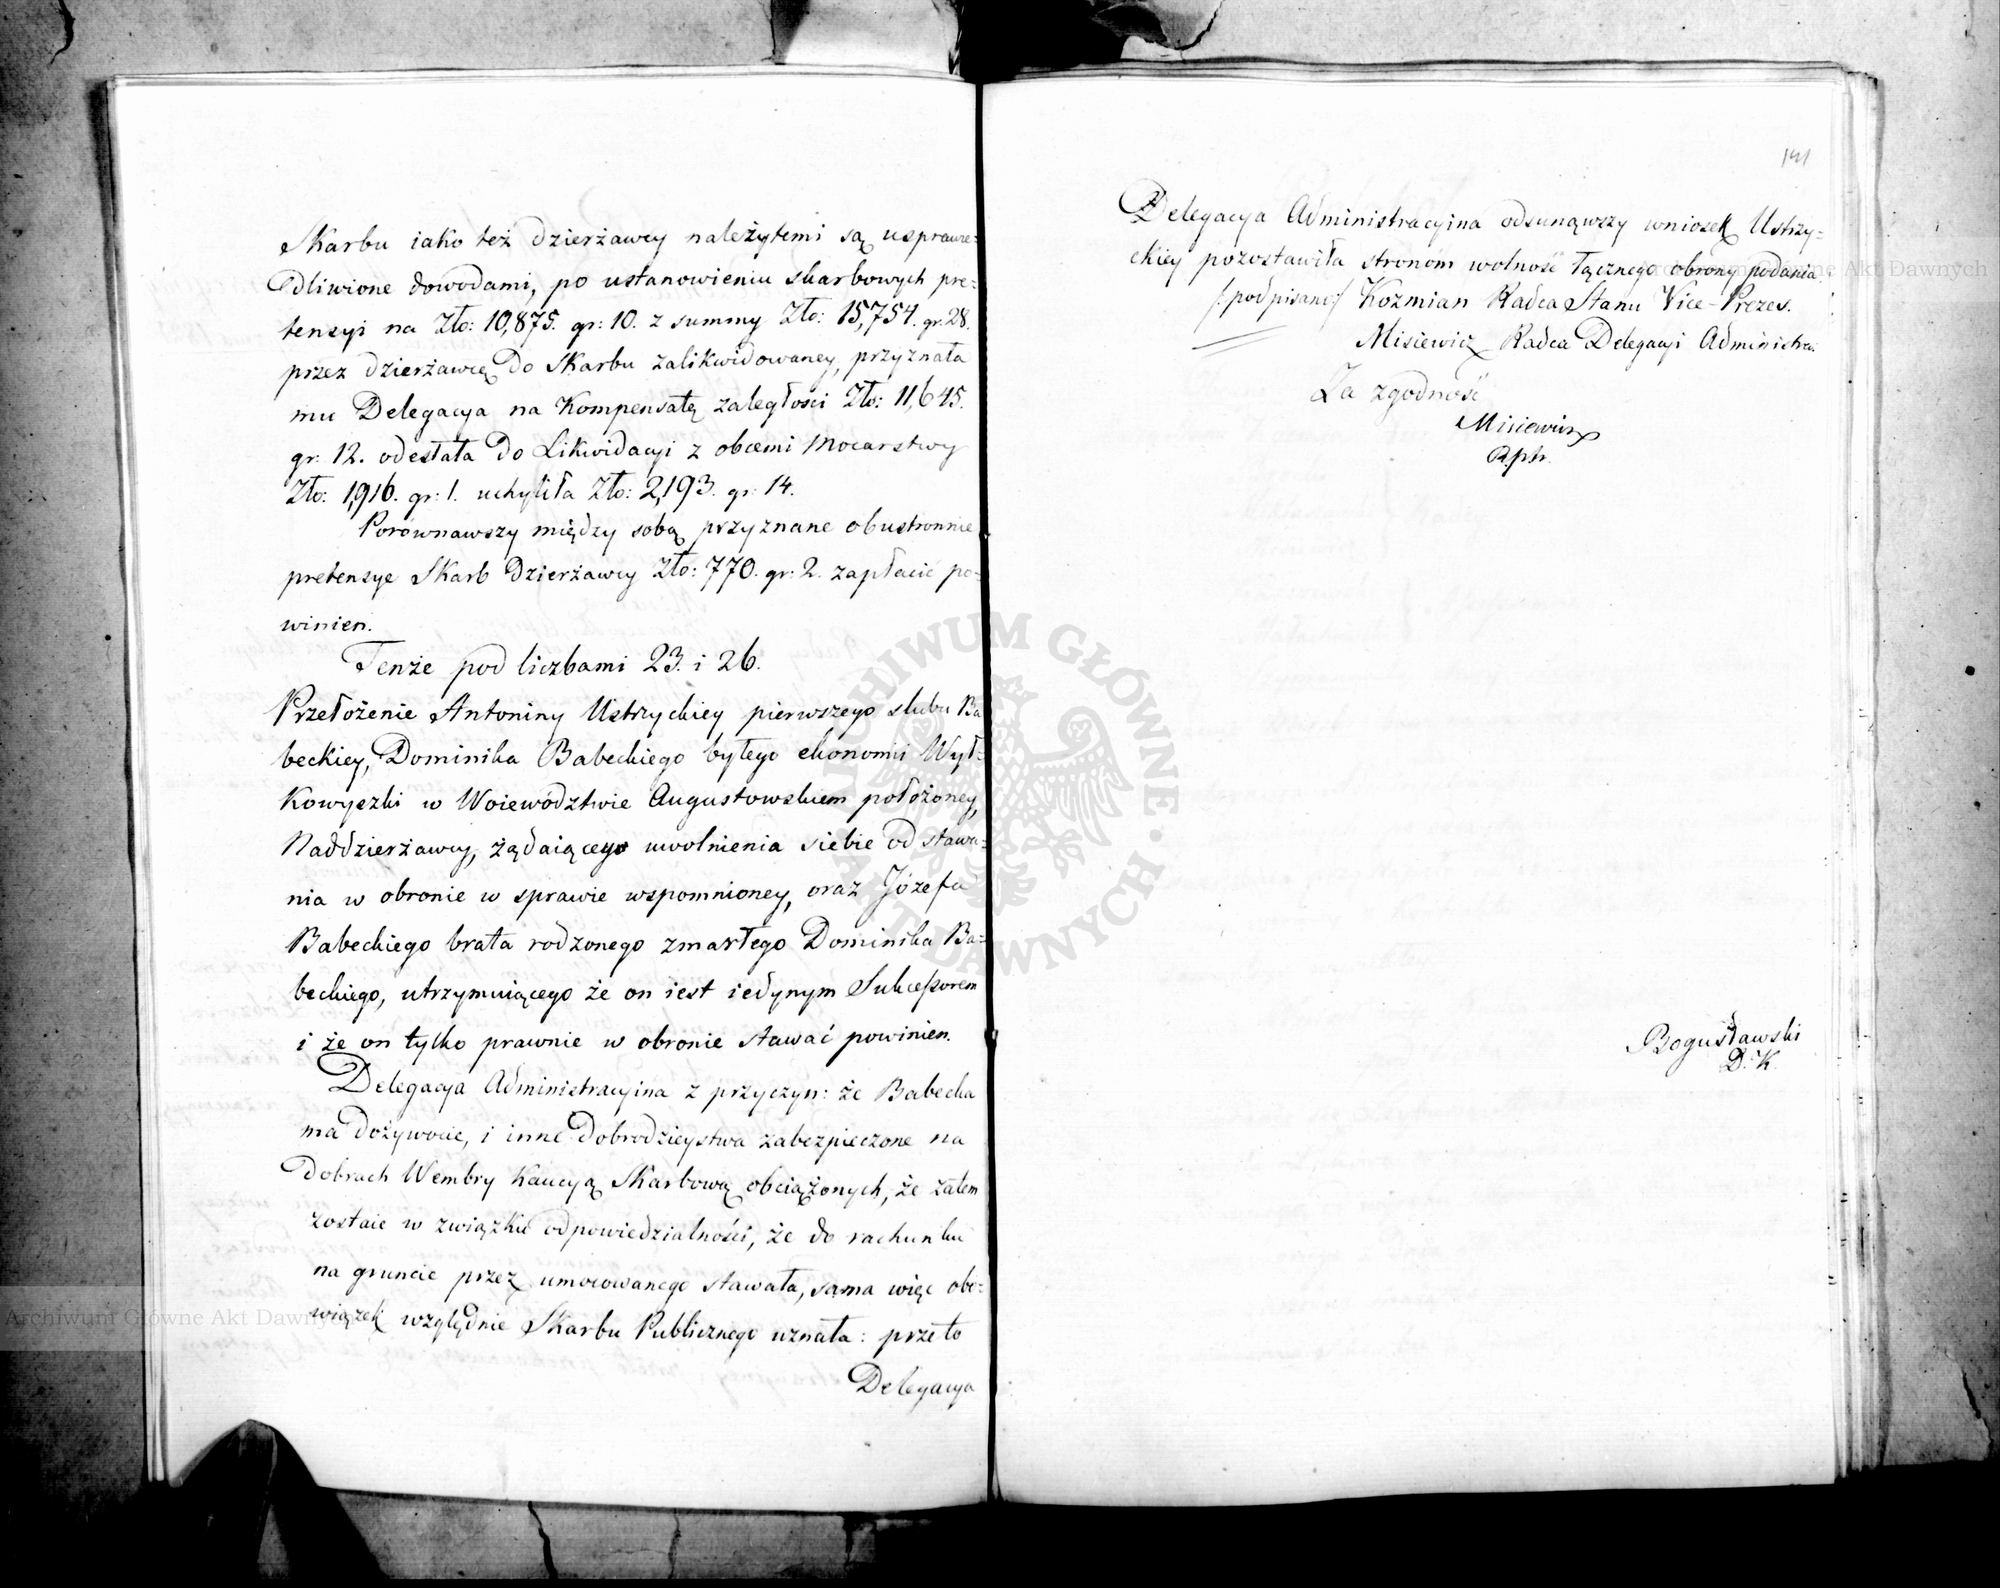 Skarbu iako też dzierżawcy należytemi są usprawie=
dliwione dowodami, po ustanowieniu skarbowych pre=
tensyi na Zło: 10,875. gr: 10. z summy Zło: 15,754. gr. 28.
przez dzierżawcę do Skarbu zalikwidowaney, przyznała
mu Delegacya na Kompensatę zaległości Zło: 11,645.
gr: 12. odesłała do Likwidacyi z obcemi Mocarstwy
Zło: 1,916. gr: 1. uchyliła Zło: 2,193. gr: 14.
Porównawszy między sobą przyznane obustronnie
pretensye Skarb Dzierżawcy Zło: 770. gr: 2. zapłacić po=
winien.
Tenże pod liczbami 23. i 26.
Przełożenie Antoniny Ustrzyckiey pierwszego slubu Ba
beckiey, Dominika Babeckiego byłego ekonomii Wył=
kowyszki w Woiewództwie Augustowskiem położoney,
Naddzierżawcy, żądaiącego uwolnienia siebie od stawa=
nia w obronie w sprawie wspomnioney, oraz Józefa
Babeckiego brata rodzonego zmarłego Dominika Ba=
beckiego, utrzymuiącego że on iest iedynym Sukcessorem
i że on tylko prawnie w obronie stawać powinien.
Delegacya Administracyina z przyczyn: że Babecka
ma dożywocie, i inne dobrodzieystwa zabezpieczone na
dobrach Wembry Kaucyą Skarbową obciążonych, że zatem
zostaie w związku odpowiedzialności, że do rachunku
na gruncie przez umocowanego stawała, sama więc obo=
wiązek względnie Skarbu Publicznego uznała: przeto
Delegacya
141
Delegacya Administracyina odsunąwszy wniosek Ustrzy=
ckiey pozostawiła stronom wolność łącznego obrony podania.
/:podpisano:/ Koźmian Radca Stanu Vice-Prezes.
Misiewicz Radca Delegacyi Administra.
Za zgodność
Misiewicz
Bogusławski
D. K.
ARCHIWUM GŁÓWNE AKT DAWNYCH
Archiwum Główne Akt Dawnych
Archiwum Główne Akt Dawnych